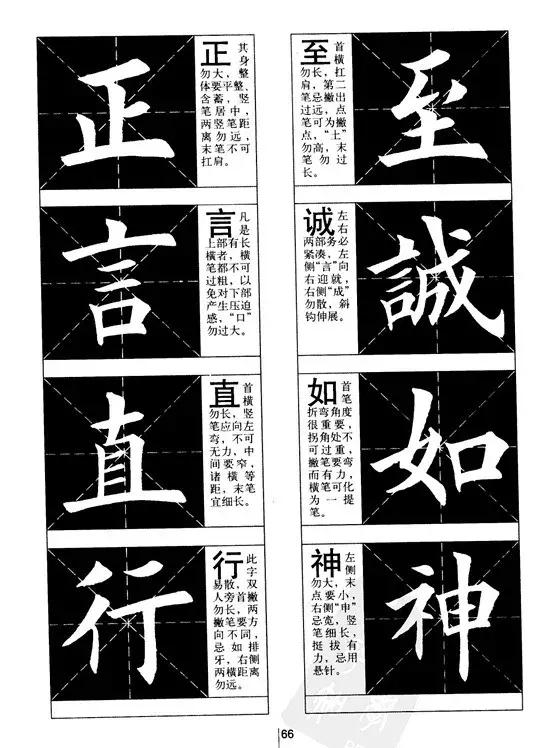 至
至
首
横
勿长，扛
肩，第二
笔忌撇出
过远，点
笔可为撇
点，“土”
勿高，末
笔勿过
长。
誠
诚
左右
两部务必
紧凑，左
侧“言”向
右迎就，
右侧“成”
勿散，斜
钩伸展。
如
如
首笔
折弯角度
很重要，
拐角处不
可过重，
撇笔要弯
而有力，
横笔可化
为一提
笔。
神
神
左侧
勿大，末
点要小，
右侧“申”
忌宽，竖
笔细长，
挺拔有
力，忌用
悬针。
正
正
其
身
勿大，整
体要平整、
含蓄，竖
笔居中，
两竖笔距
离勿远，
末笔不可
扛肩。
言
言
凡是
上部有长
横者，横
笔都不可
过粗，以
免对下部
产生压迫
感，“口”
勿过大。
直
直
首横
勿长，竖
笔应向左
弯，不可
无力，中
间要窄，
诸横等
距，末笔
宜细长。
行
行
此字
易散，双
人旁首撇
勿长，两
撇笔要方
向不同，
忌如排
牙，右侧
两横距离
勿远。
66